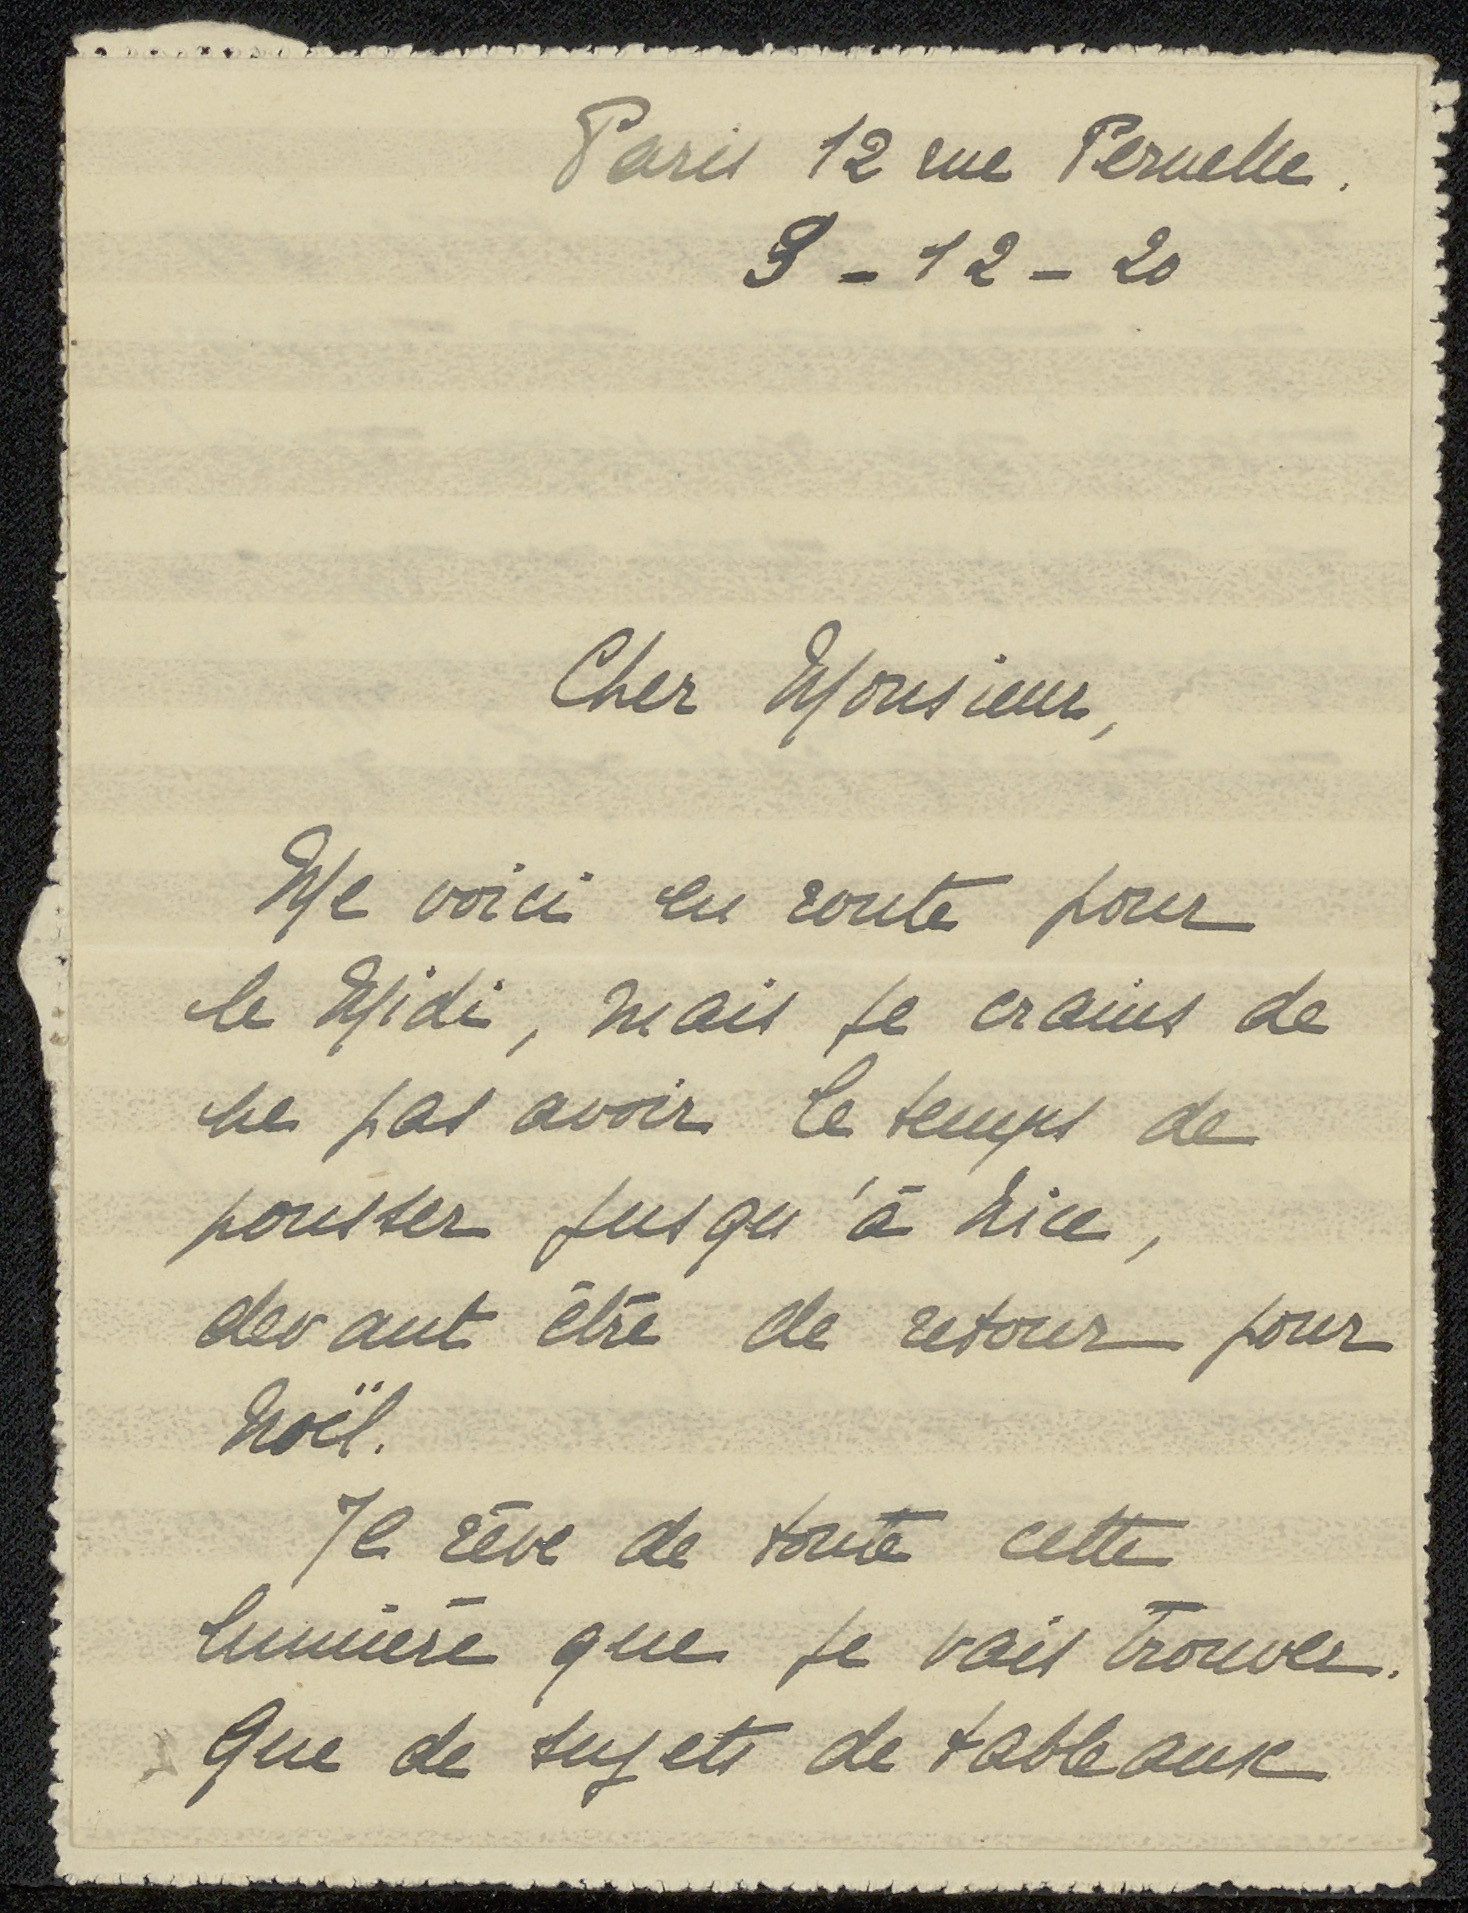 Paris 12 rue Pernelle.
9 - 12 - 20
Cher Monsieur,
Me voici en route pour
le Midi, mais je crains de
ne pas avoir le temps de
pousser jusqu'à Nice,
devant être de retour pour
Noël.
Je rêve de toute cette
lumière que je vais trouver.
Que de sujets de tableaux